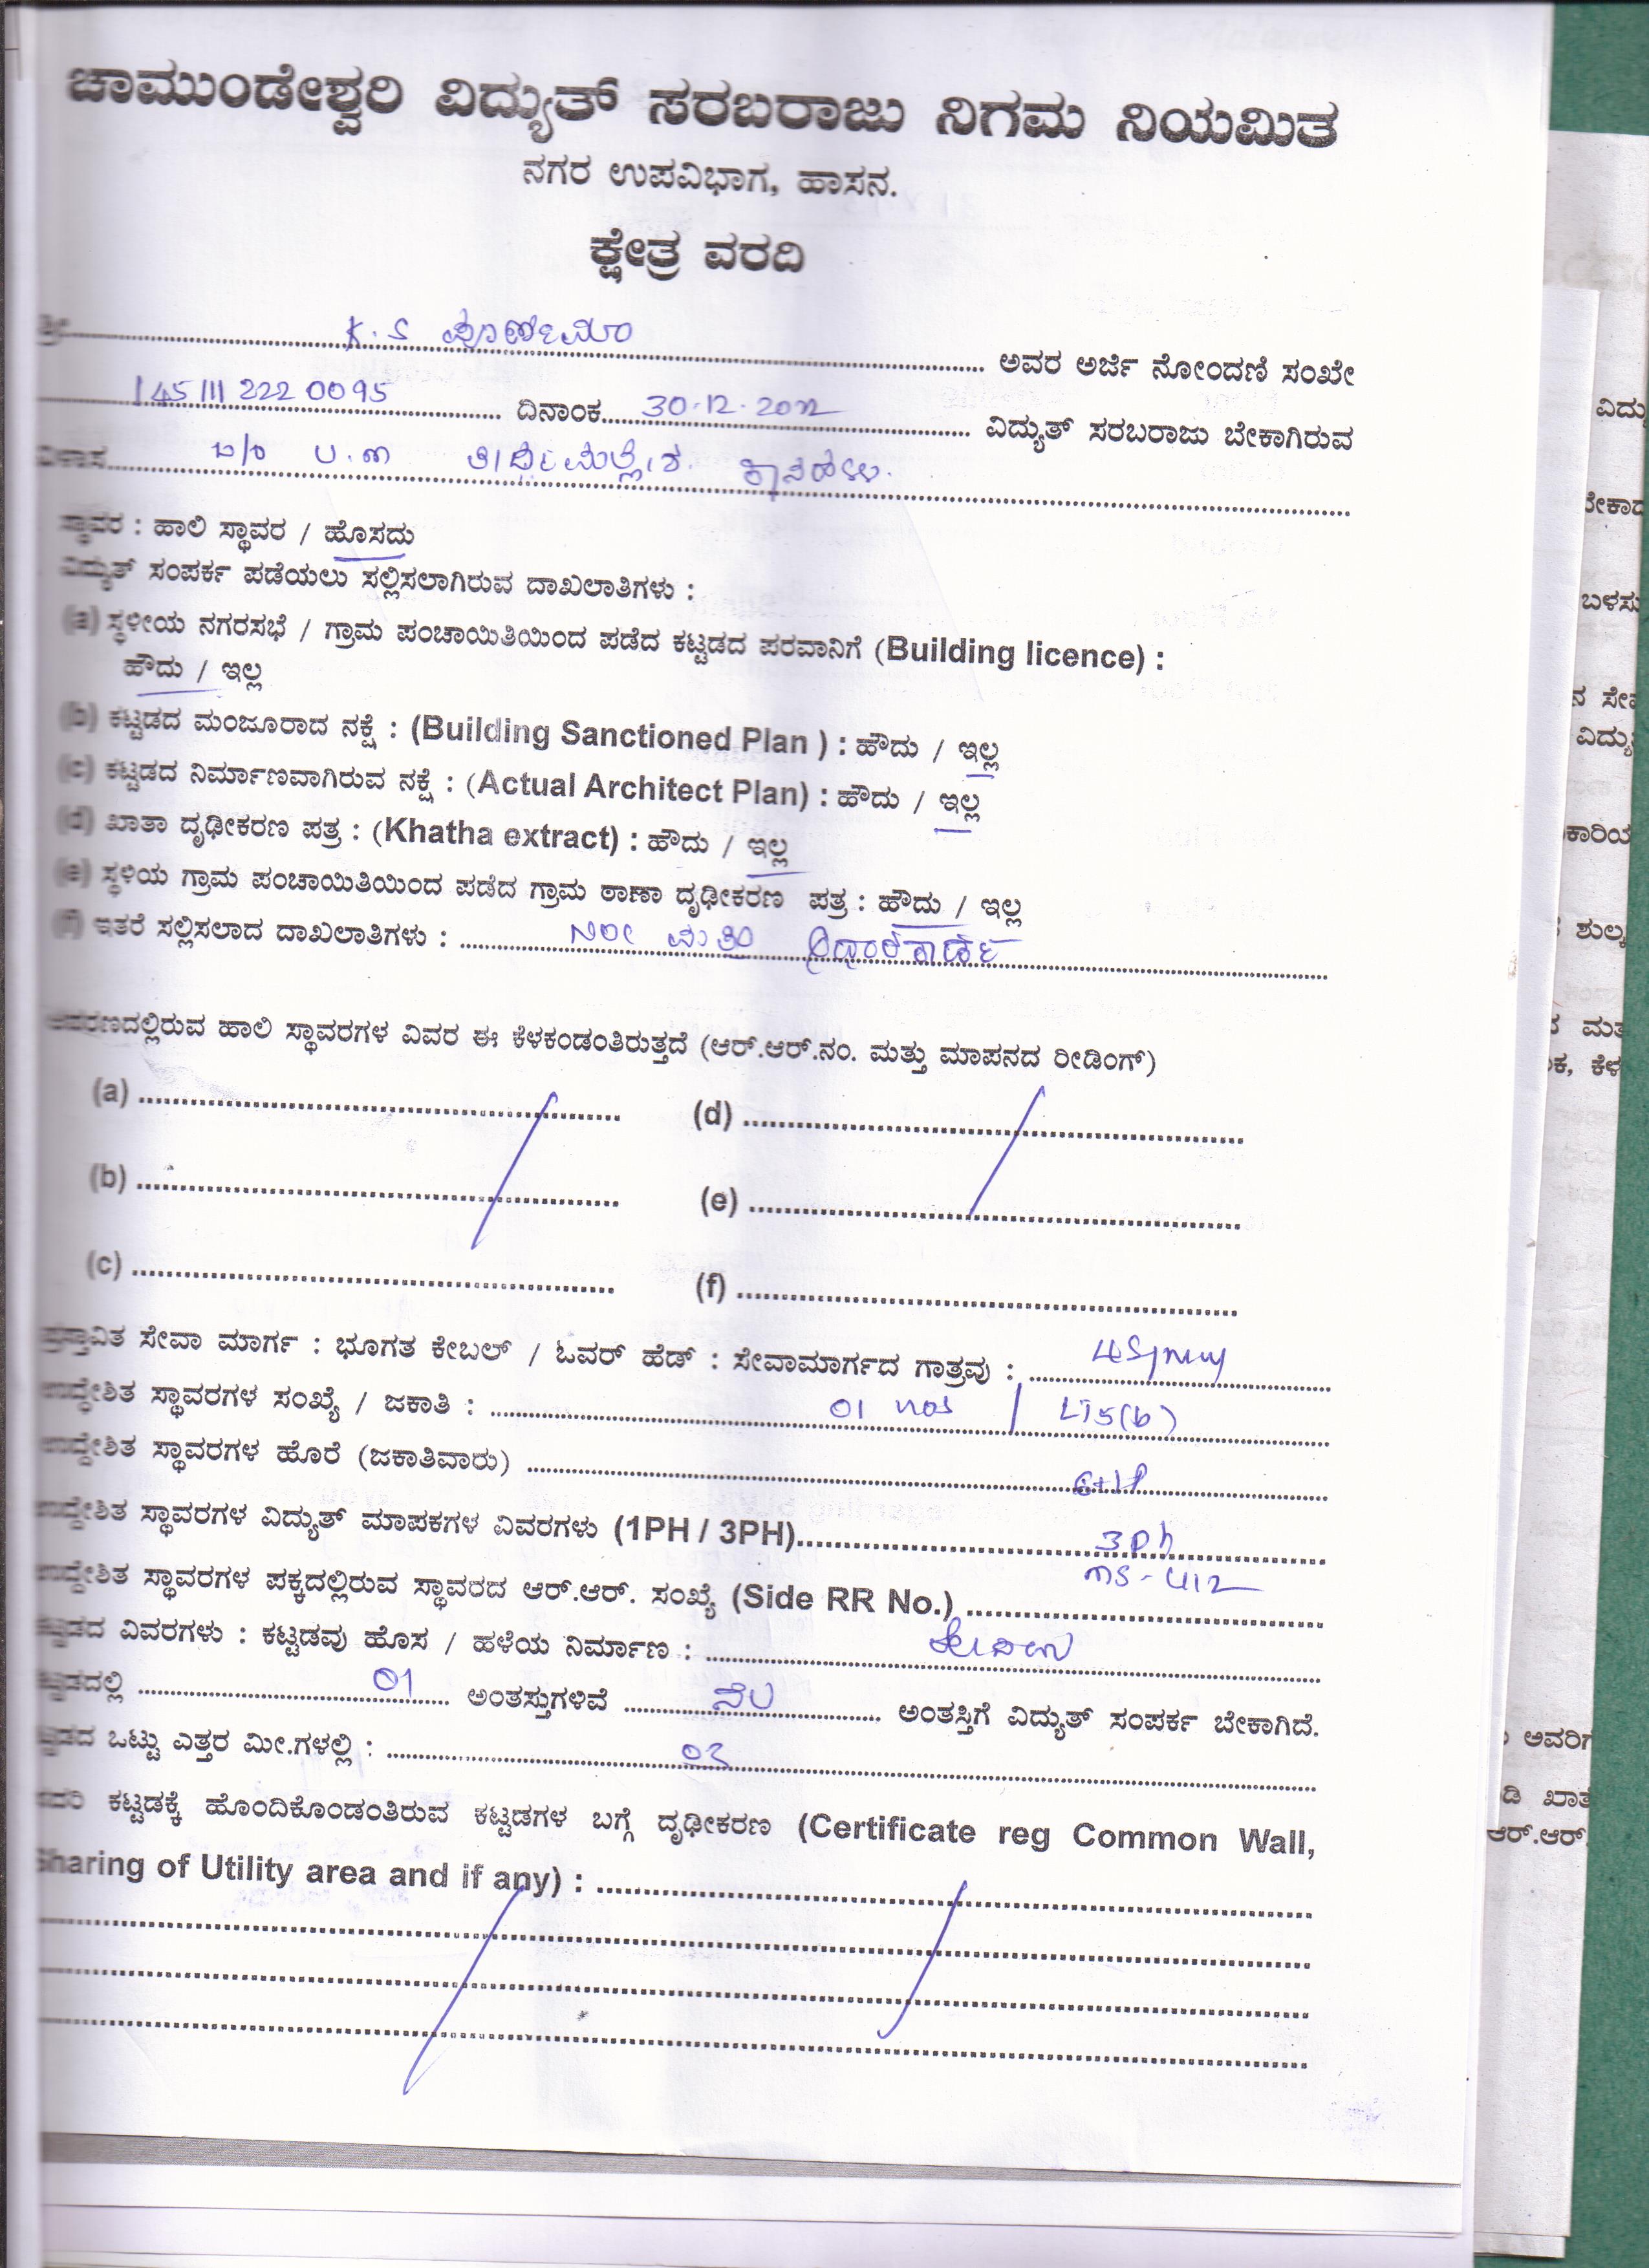 ಚಾಮುಂಡೇಶ್ವರಿ ವಿದ್ಯುತ್ ಸರಬರಾಜು ನಿಗಮ ನಿಯಮಿತ
ನಗರ ಉಪವಿಭಾಗ, ಹಾಸನ.
ಕ್ಷೇತ್ರ ವರದಿ
ಶ್ರೀ K.S ಪೂರ್ಣಿಮಾ ಅವರ ಅರ್ಜಿ ನೋಂದಣಿ ಸಂಖೇ
145 111 222 0095 ದಿನಾಂಕ 30.12.2022 ವಿದ್ಯುತ್ ಸರಬರಾಜು ಬೇಕಾಗಿರುವ
ವಿಳಾಸ
ಸ್ಥಾವರ : ಹಾಲಿ ಸ್ಥಾವರ / ಹೊಸದು
ವಿದ್ಯುತ್ ಸಂಪರ್ಕ ಪಡೆಯಲು ಸಲ್ಲಿಸಲಾಗಿರುವ ದಾಖಲಾತಿಗಳು :
(a) ಸ್ಥಳೀಯ ನಗರಸಭೆ / ಗ್ರಾಮ ಪಂಚಾಯಿತಿಯಿಂದ ಪಡೆದ ಕಟ್ಟಡದ ಪರವಾನಿಗೆ (Building licence) :
ಹೌದು / ಇಲ್ಲ
(b) ಕಟ್ಟಡದ ಮಂಜೂರಾದ ನಕ್ಷೆ : (Building Sanctioned Plan ) : ಹೌದು / ಇಲ್ಲ
(c) ಕಟ್ಟಡದ ನಿರ್ಮಾಣವಾಗಿರುವ ನಕ್ಷೆ : (Actual Architect Plan) : ಹೌದು / ಇಲ್ಲ
(d) ಖಾತಾ ದೃಢೀಕರಣ ಪತ್ರ : (Khatha extract) : ಹೌದು / ಇಲ್ಲ
(e) ಸ್ಥಳಿಯ ಗ್ರಾಮ ಪಂಚಾಯಿತಿಯಿಂದ ಪಡೆದ ಗ್ರಾಮ ಠಾಣಾ ದೃಢೀಕರಣ ಪತ್ರ : ಹೌದು / ಇಲ್ಲ
(f) ಇತರೆ ಸಲ್ಲಿಸಲಾದ ದಾಖಲಾತಿಗಳು :
ಆವರಣದಲ್ಲಿರುವ ಹಾಲಿ ಸ್ಥಾವರಗಳ ವಿವರ ಈ ಕೆಳಕಂಡಂತಿರುತ್ತದೆ (ಆರ್.ಆರ್.ನಂ. ಮತ್ತು ಮಾಪನದ ರೀಡಿಂಗ್)
(a) (d)
(b) (e)
(c) (f)
ಪ್ರಸ್ತಾವಿತ ಸೇವಾ ಮಾರ್ಗ : ಭೂಗತ ಕೇಬಲ್ / ಓವರ್ ಹೆಡ್ : ಸೇವಾಮಾರ್ಗದ ಗಾತ್ರವು : 4Sqmm
ಉದ್ದೇಶಿತ ಸ್ಥಾವರಗಳ ಸಂಖ್ಯೆ / ಜಕಾತಿ : 01 nos / LT5(b)
ಉದ್ದೇಶಿತ ಸ್ಥಾವರಗಳ ಹೊರೆ (ಜಕಾತಿವಾರು)
ಉದ್ದೇಶಿತ ಸ್ಥಾವರಗಳ ವಿದ್ಯುತ್ ಮಾಪಕಗಳ ವಿವರಗಳು (1PH / 3PH) 3Ph
ಉದ್ದೇಶಿತ ಸ್ಥಾವರಗಳ ಪಕ್ಕದಲ್ಲಿರುವ ಸ್ಥಾವರದ ಆರ್.ಆರ್. ಸಂಖ್ಯೆ (Side RR No.) MS-412
ಕಟ್ಟಡದ ವಿವರಗಳು : ಕಟ್ಟಡವು ಹೊಸ / ಹಳೆಯ ನಿರ್ಮಾಣ :
ಕಟ್ಟಡದಲ್ಲಿ 01 ಅಂತಸ್ತುಗಳಿವೆ ನೆಲ ಅಂತಸ್ತಿಗೆ ವಿದ್ಯುತ್ ಸಂಪರ್ಕ ಬೇಕಾಗಿದೆ.
ಕಟ್ಟಡದ ಒಟ್ಟು ಎತ್ತರ ಮೀ.ಗಳಲ್ಲಿ : 03
ಸದರಿ ಕಟ್ಟಡಕ್ಕೆ ಹೊಂದಿಕೊಂಡಂತಿರುವ ಕಟ್ಟಡಗಳ ಬಗ್ಗೆ ದೃಢೀಕರಣ (Certificate reg Common Wall,
Sharing of Utility area and if any) :